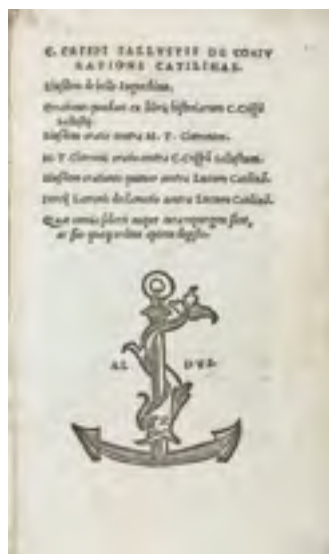 C. CRISPI SALLVSTII DE CONIV
RATIONE CATILINAE.
Eiusdem de bello Iugurthino.
Orationes quædam ex libris historiarum C. Crispi
Sallustij.
Eiusdem oratio contra M. T. Ciceronem.
M. T. Ciceronis oratio contra C. Crispũ Sallustium.
Eiusdem orationes quatuor contra Lucium Catilinã.
Porcij Latronis declamatio contra Lucium Catilinã.
Quæ omnia solerti nuper cura repurgata sunt,
ac suo quæque ordine optime digesta.
AL DVS.